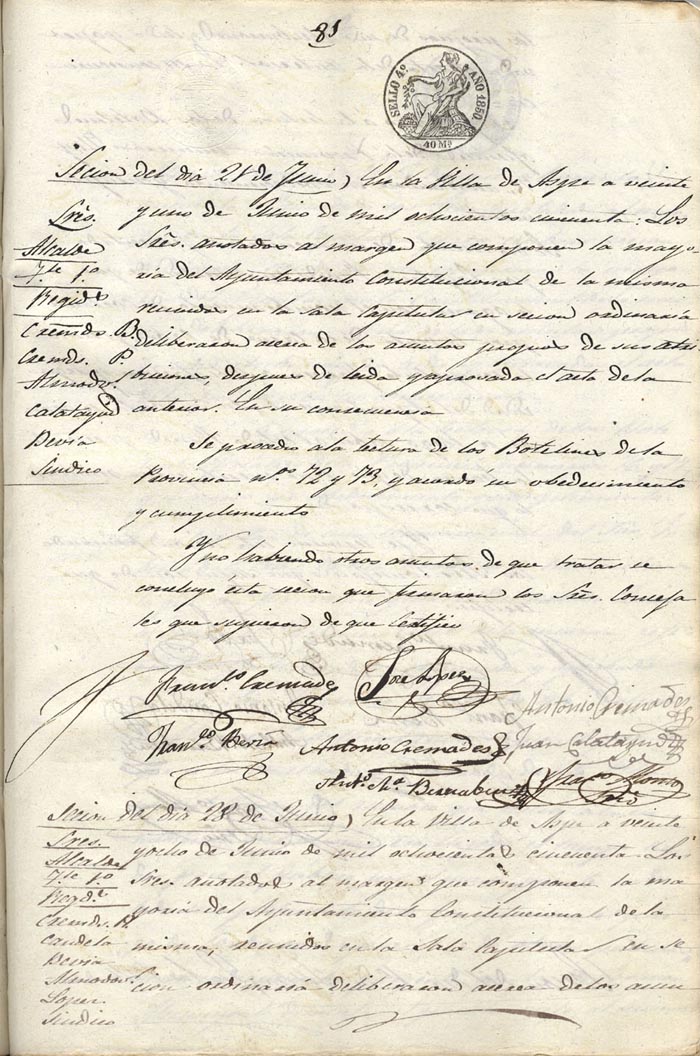 81
SELLO 4º AÑO 1850.
40 Ms
Secion del dia 21 de Junio) En la Villa de Aspe a veinte
y uno de Junio de mil ochocientos cincuenta: Los
Sres. anotados al margen que componen la mayo
ria del Ayuntamiento Constitucional de la misma
reunidos en la sala Capitular en secion ordinaria
deliberaron acerca de los asuntos propios de sus atri
buciones, despues de leida y aprovada el acta de la
anterior. En su consecuencia
Sres.
Alcalde
Tte 1º
Regidrs
Cremds. B.
Cremds. P.
Almodor.
Calatayud
Devia
Sindico
Se procedio a la lectura de los Boletines de la
Provincia nos 72 y 73, y acordó su obedecimiento
y cumplimiento
Y no habiendo otros asuntos de que tratar se
concluyó ésta secion que firmaron los Sres. Conceja
les que supieron de que Certifico
Franco Cremades
José Lopez
Antonio Cremades
Franco Devia
Antonio Cremades
Juan Calatayud
Anto Ma Berrabeu
Secion del dia 28 de Junio) En la Villa de Aspe a veinte
y ocho de Junio de mil ochocientos cincuenta Los
Sres. anotados al margen que componen la ma
yoria del Ayuntamiento Constitucional de la
misma, reunidos en la Sala Capitular en se
cion ordinaria deliberaron acerca de los asun
Sres.
Alcalde
Tte 1º
Regdrs
Cremds. B.
Candela
Devia
Almodor.
Lopez
Sindico